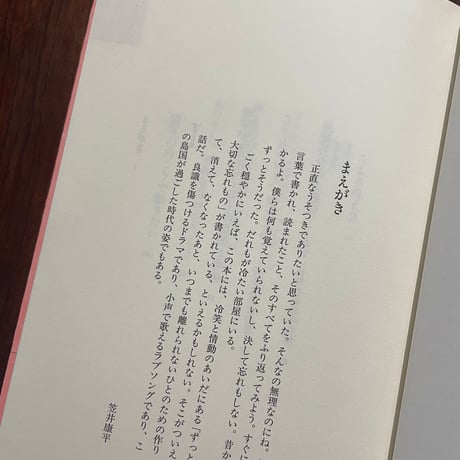 まえがき
正直なうそつきでありたいと思っていた。そんなの無理なのにね。
言葉で書かれ、読まれたこと、そのすべてをふり返ってみよう。すぐに
かるよ。僕らは何も覚えていられないし、決して忘れもしない。昔か
ずっとそうだった。だれもが冷たい部屋にいる。
ごく穏やかにいえば、この本には、冷笑と情動のあいだにある「ずっと
大切な忘れもの」が書かれている、といえるかもしれない。そこがついえ
て、消えて、なくなったあと、いつまでも離れられないひとのための作り
話だ。良識を傷つけるドラマであり、小声で歌えるラブソングであり、こ
の島国が過ごした時代の姿でもある。
笠井康平